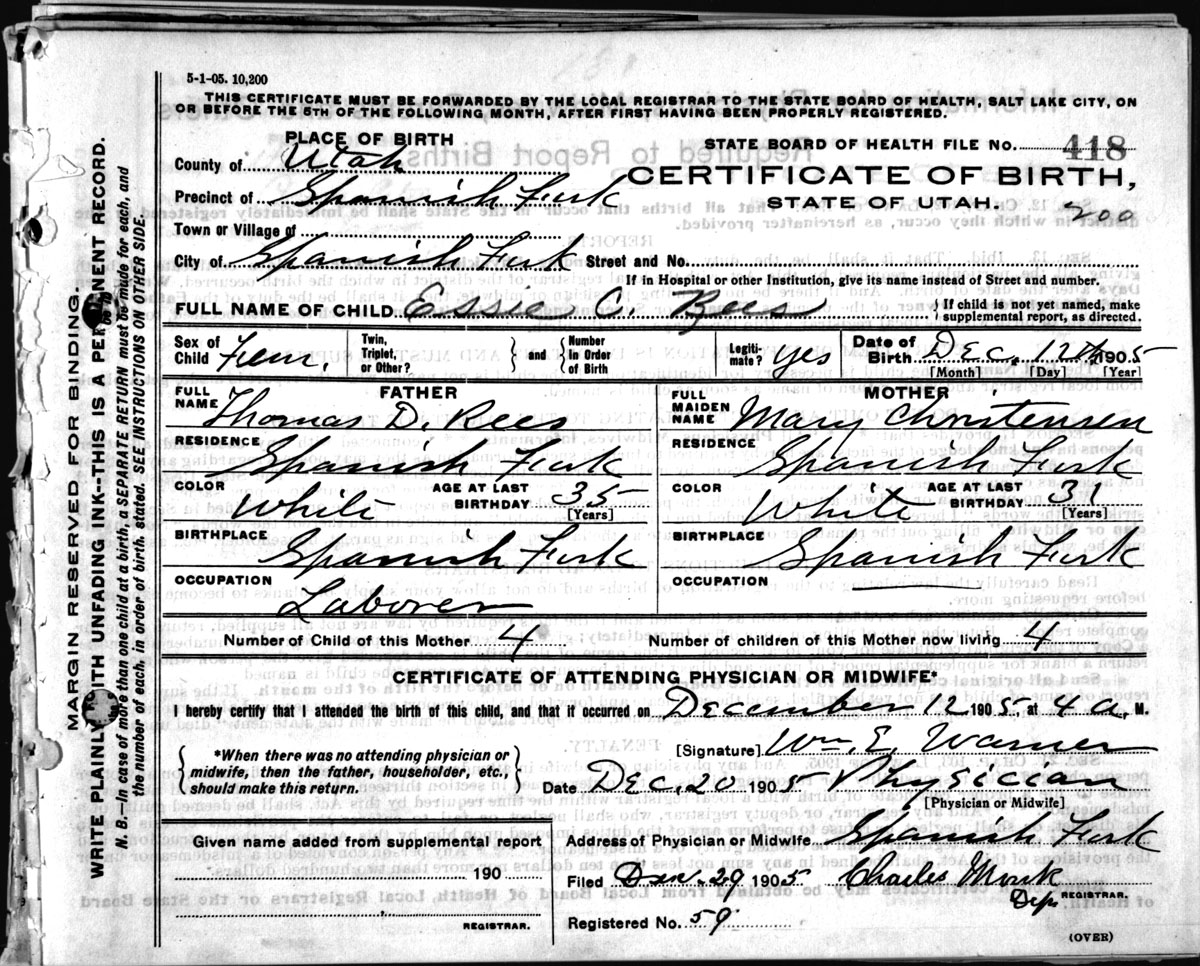 5-1-05. 10,200
THIS CERTIFICATE MUST BE FORWARDED BY THE LOCAL REGISTRAR TO THE STATE BOARD OF HEALTH, SALT LAKE CITY, ON
OR BEFORE THE 5TH OF THE FOLLOWING MONTH, AFTER FIRST HAVING BEEN PROPERLY REGISTERED.
PLACE OF BIRTH
County of Utah
Precinct of Spanish Fork
Town or Village of
STATE BOARD OF HEALTH FILE NO. 418
CERTIFICATE OF BIRTH,
STATE OF UTAH.
200
City of Spanish Fork Street and No.
If in Hospital or other Institution, give its name instead of Street and number.
FULL NAME OF CHILD Essie C. Rees
If child is not yet named, make
supplemental report, as directed.
Sex of Child Fem.
Twin, Triplet, or Other? and Number In Order of Birth
Legiti-mate? yes
Date of Birth Dec. 12th 1905
[Month] [Day] [Year]
FATHER
FULL NAME Thomas D. Rees
RESIDENCE Spanish Fork
COLOR White AGE AT LAST BIRTHDAY 35
[Years]
BIRTHPLACE Spanish Fork
OCCUPATION Laborer
MOTHER
FULL MAIDEN NAME Mary Christensen
RESIDENCE Spanish Fork
COLOR White AGE AT LAST BIRTHDAY 31
[Years]
BIRTHPLACE Spanish Fork
OCCUPATION
Number of Child of this Mother 4 Number of children of this Mother now living 4
CERTIFICATE OF ATTENDING PHYSICIAN OR MIDWIFE*
I hereby certify that I attended the birth of this child, and that it occurred on December 12 1905, at 4 a. M.
*When there was no attending physician or
midwife, then the father, householder, etc.,
should make this return.
[Signature] Wm. E. Warner
Date Dec. 20 1905 Physician
[Physician or Midwife]
Given name added from supplemental report
190
REGISTRAR.
Address of Physician or Midwife Spanish Fork
Filed 29 1905 Charles Monk
Dep. REGISTRAR.
Registered No. 59
(OVER)
MARGIN RESERVED FOR BINDING
WRITE PLAINLY WITH UNFADING INK--THIS IS A PERMANENT RECORD.
N. B.—In case of more than one child at a birth, a SEPARATE RETURN must be made for each, and
the number of each, in order of birth, stated. SEE INSTRUCTIONS ON OTHER SIDE.